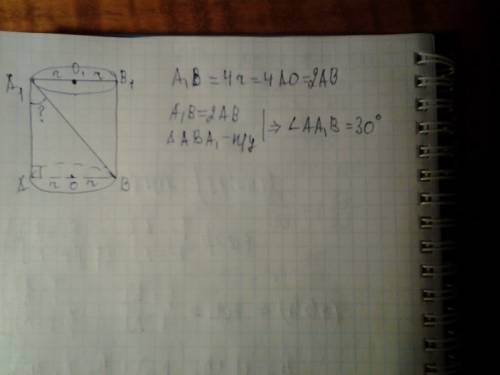 r O₁ r
A₁ B₁
?
A r O r B
A₁B = 4r = 4AO = 2AB
A₁B = 2AB
ΔABA₁ - п/у | ⇒ ∠AA₁B = 30°